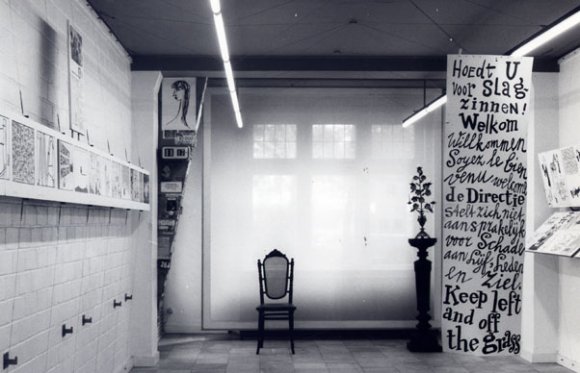 Hoedt U
voor slag-
zinnen!
Welkom
Willkommen
Soyez le bien
venu welcome
de Directie
stelt zich niet
aansprakelijk
voor Schade
aan Lijf, Leden
en Ziel.
Keep left
and off
the grass